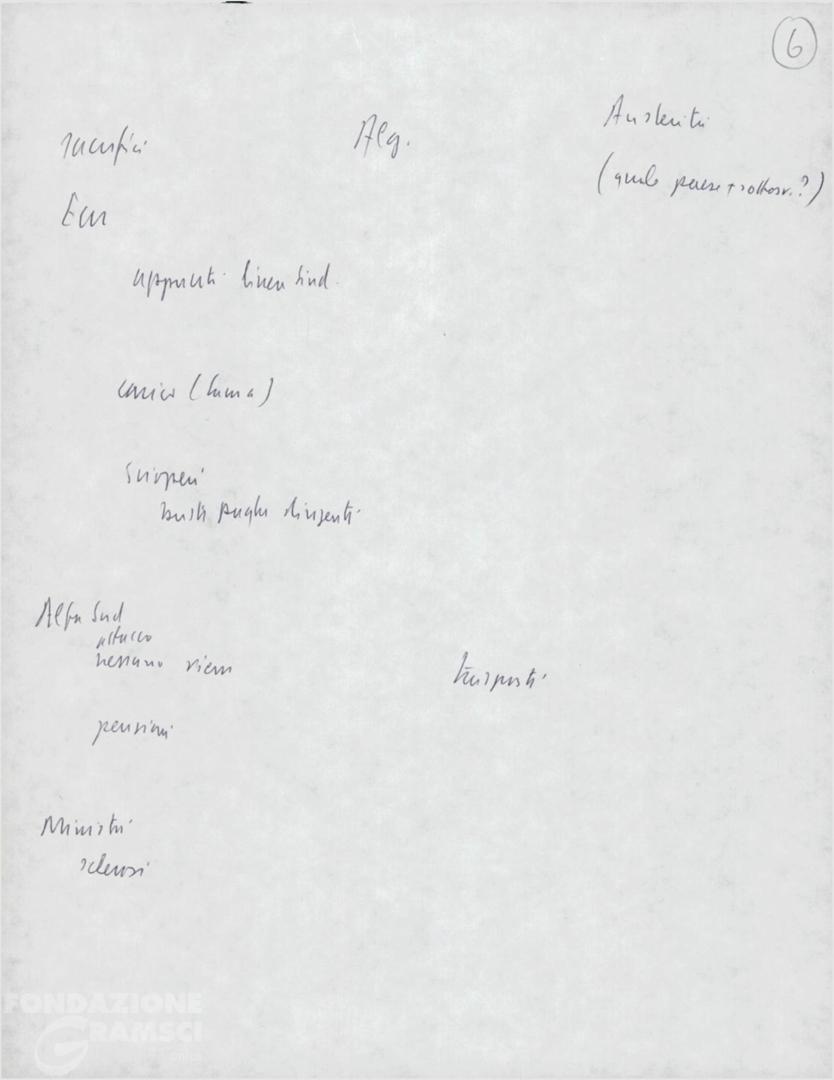 6
sacrifici
Alg.
Austerità
(quale paese + sottosv.?)
Eur
appunti linea sind.
carico (Lama)
Scioperi
buste paghe dirigenti
Alfa Sud
attacco
nessuno viene
trasporti
pensioni
Ministri
sclerosi
FONDAZIONE
GRAMSCI